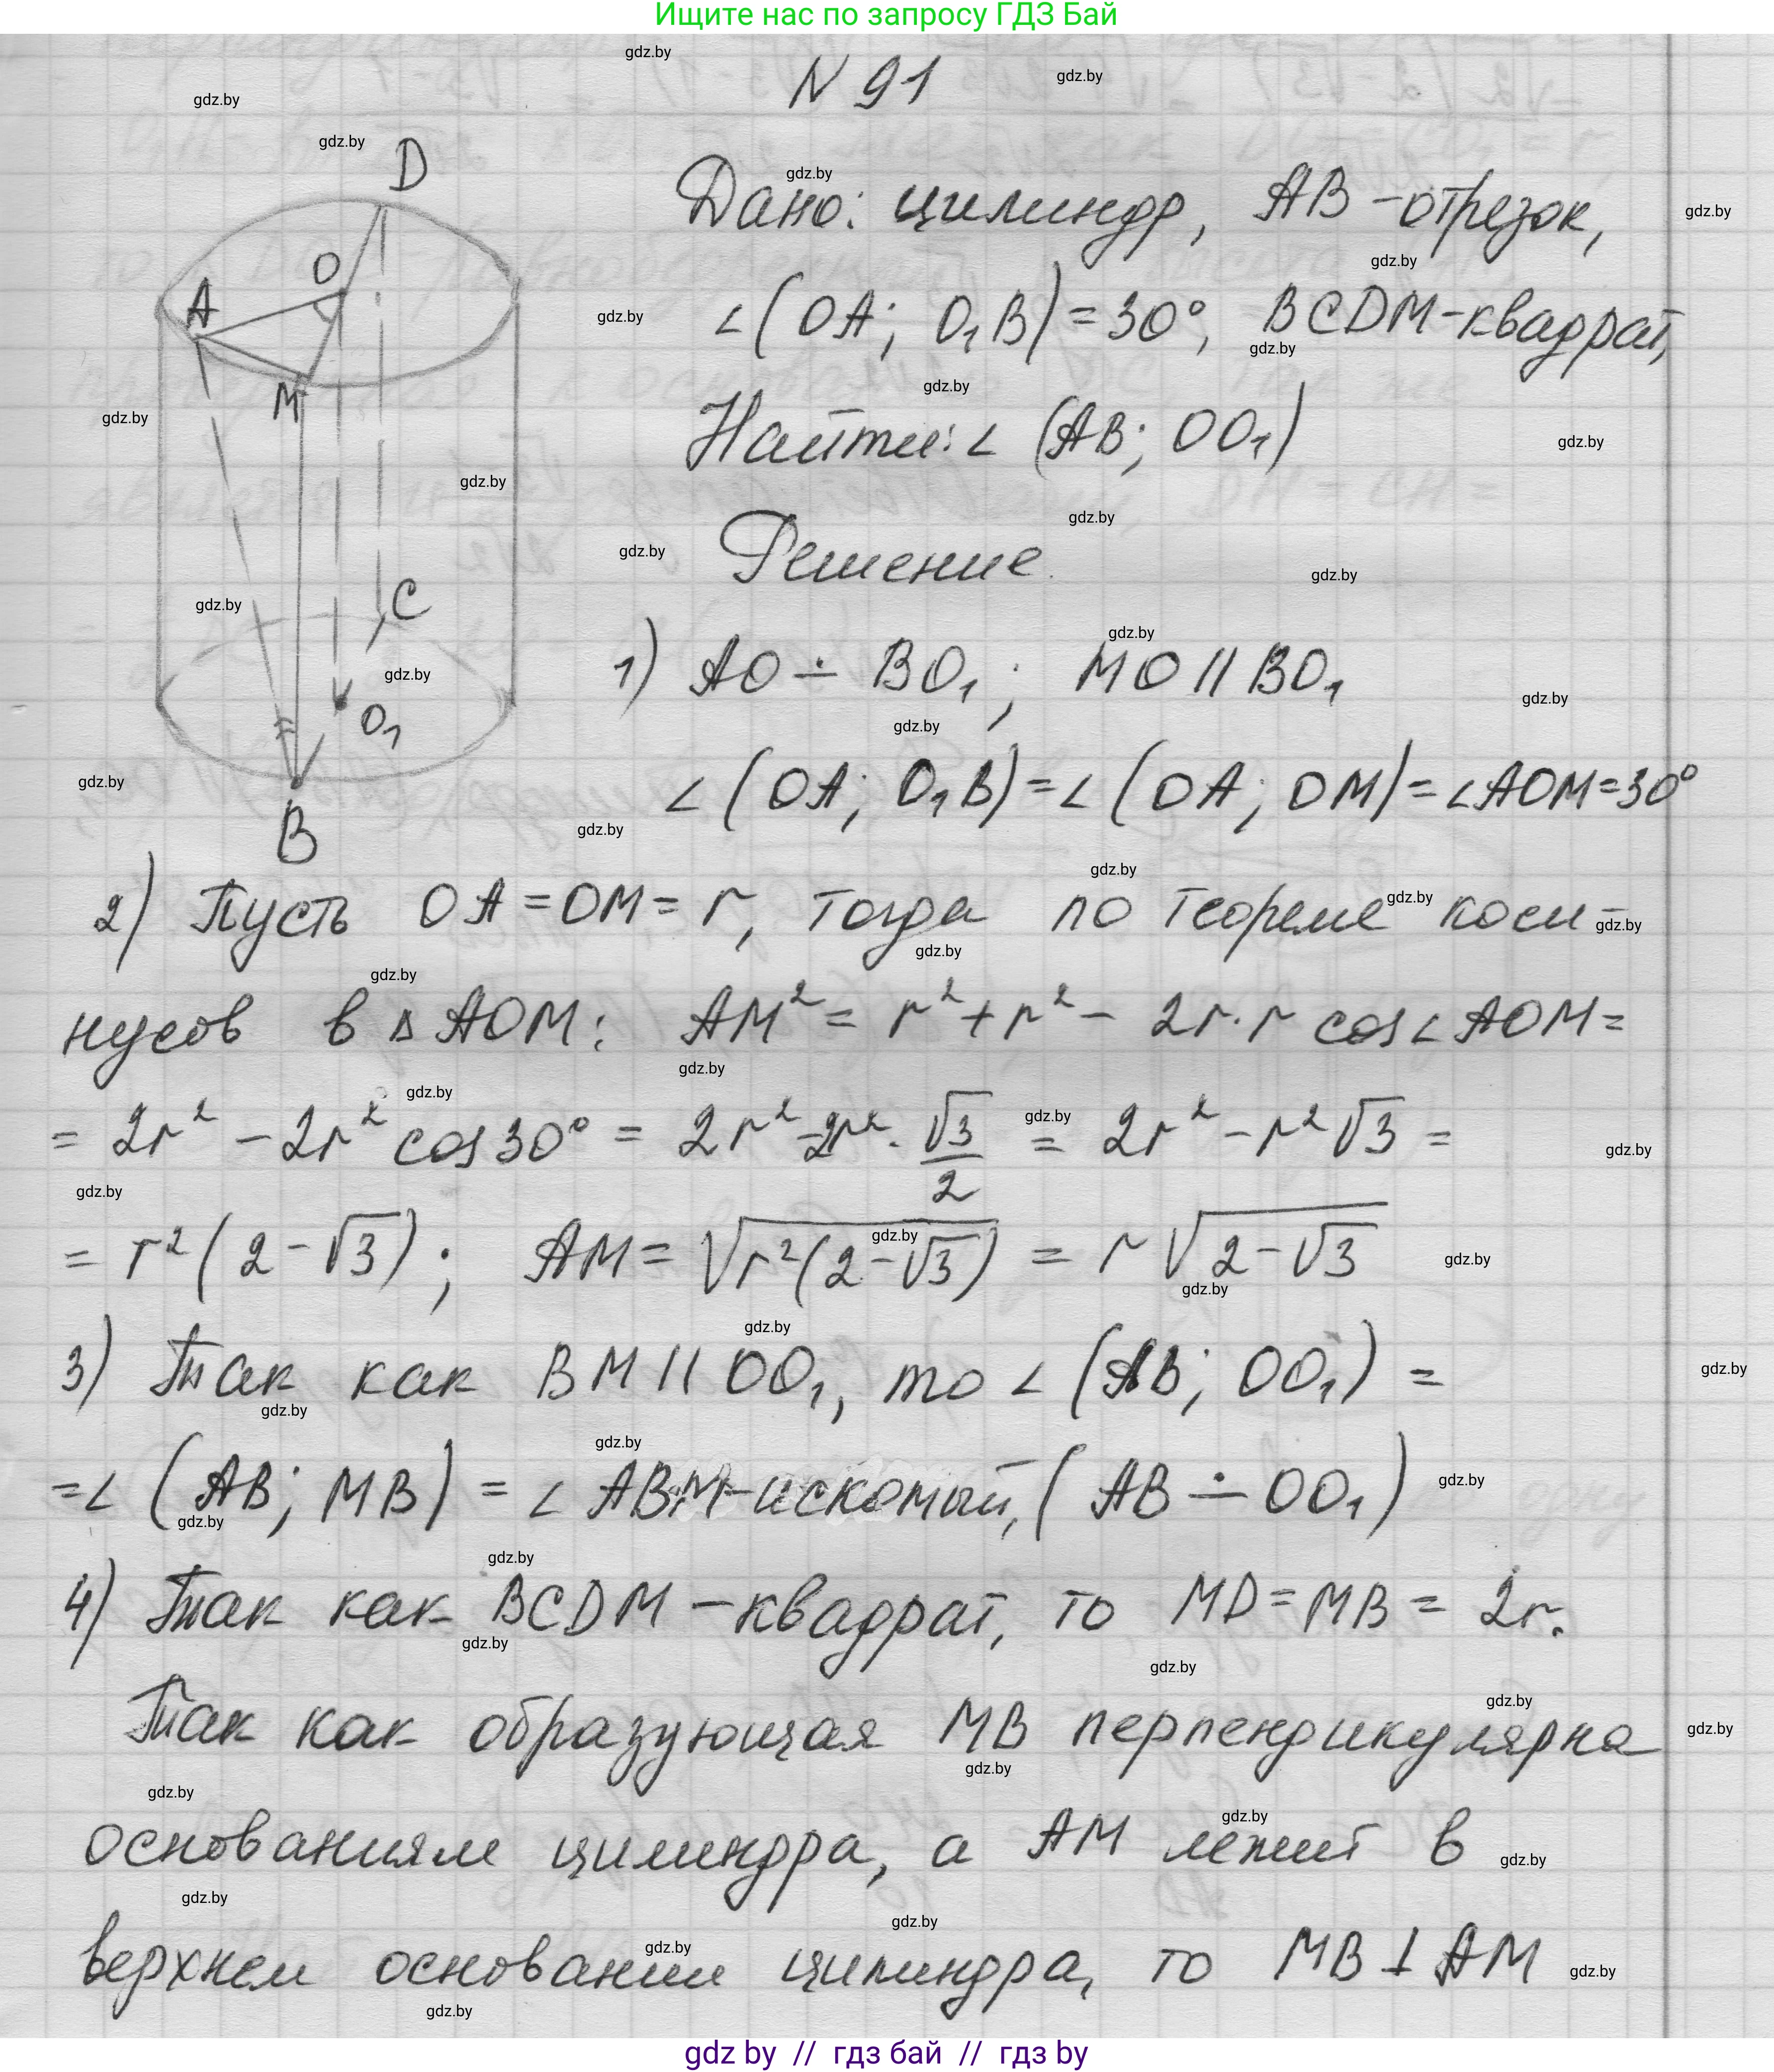 Ищите нас по запросу ГДЗ Бай
N 91
Дано: цилиндр, AB - отрезок,
∠(OA; O₁B) = 30°, BCDM - квадрат,
Найти: ∠ (AB; OO₁)
Решение.
D
O
A
M
C
O₁
B
1) AO ∸ BO₁; MO || BO₁
∠(OA; O₁B) = ∠(OA; OM) = ∠AOM = 30°
2) Пусть OA = OM = r, тогда по теореме коси-
нусов в △ AOM: AM² = r² + r² - 2r · r cos∠AOM =
= 2r² - 2r² cos 30° = 2r² - 2r² · √3/2 = 2r² - r²√3 =
= r² (2 - √3); AM = √(r²(2 - √3)) = r√(2 - √3)
3) Так как BM || OO₁, то ∠ (AB; OO₁) =
= ∠ (AB; MB) = ∠ ABM - искомый, (AB ∸ OO₁)
4) Так как BCDM - квадрат, то MD = MB = 2r.
Так как образующая MB перпендикулярна
основаниям цилиндра, а AM лежит в
верхнем основании цилиндра, то MB ⊥ AM
gdz by // гдз бай // гдз by